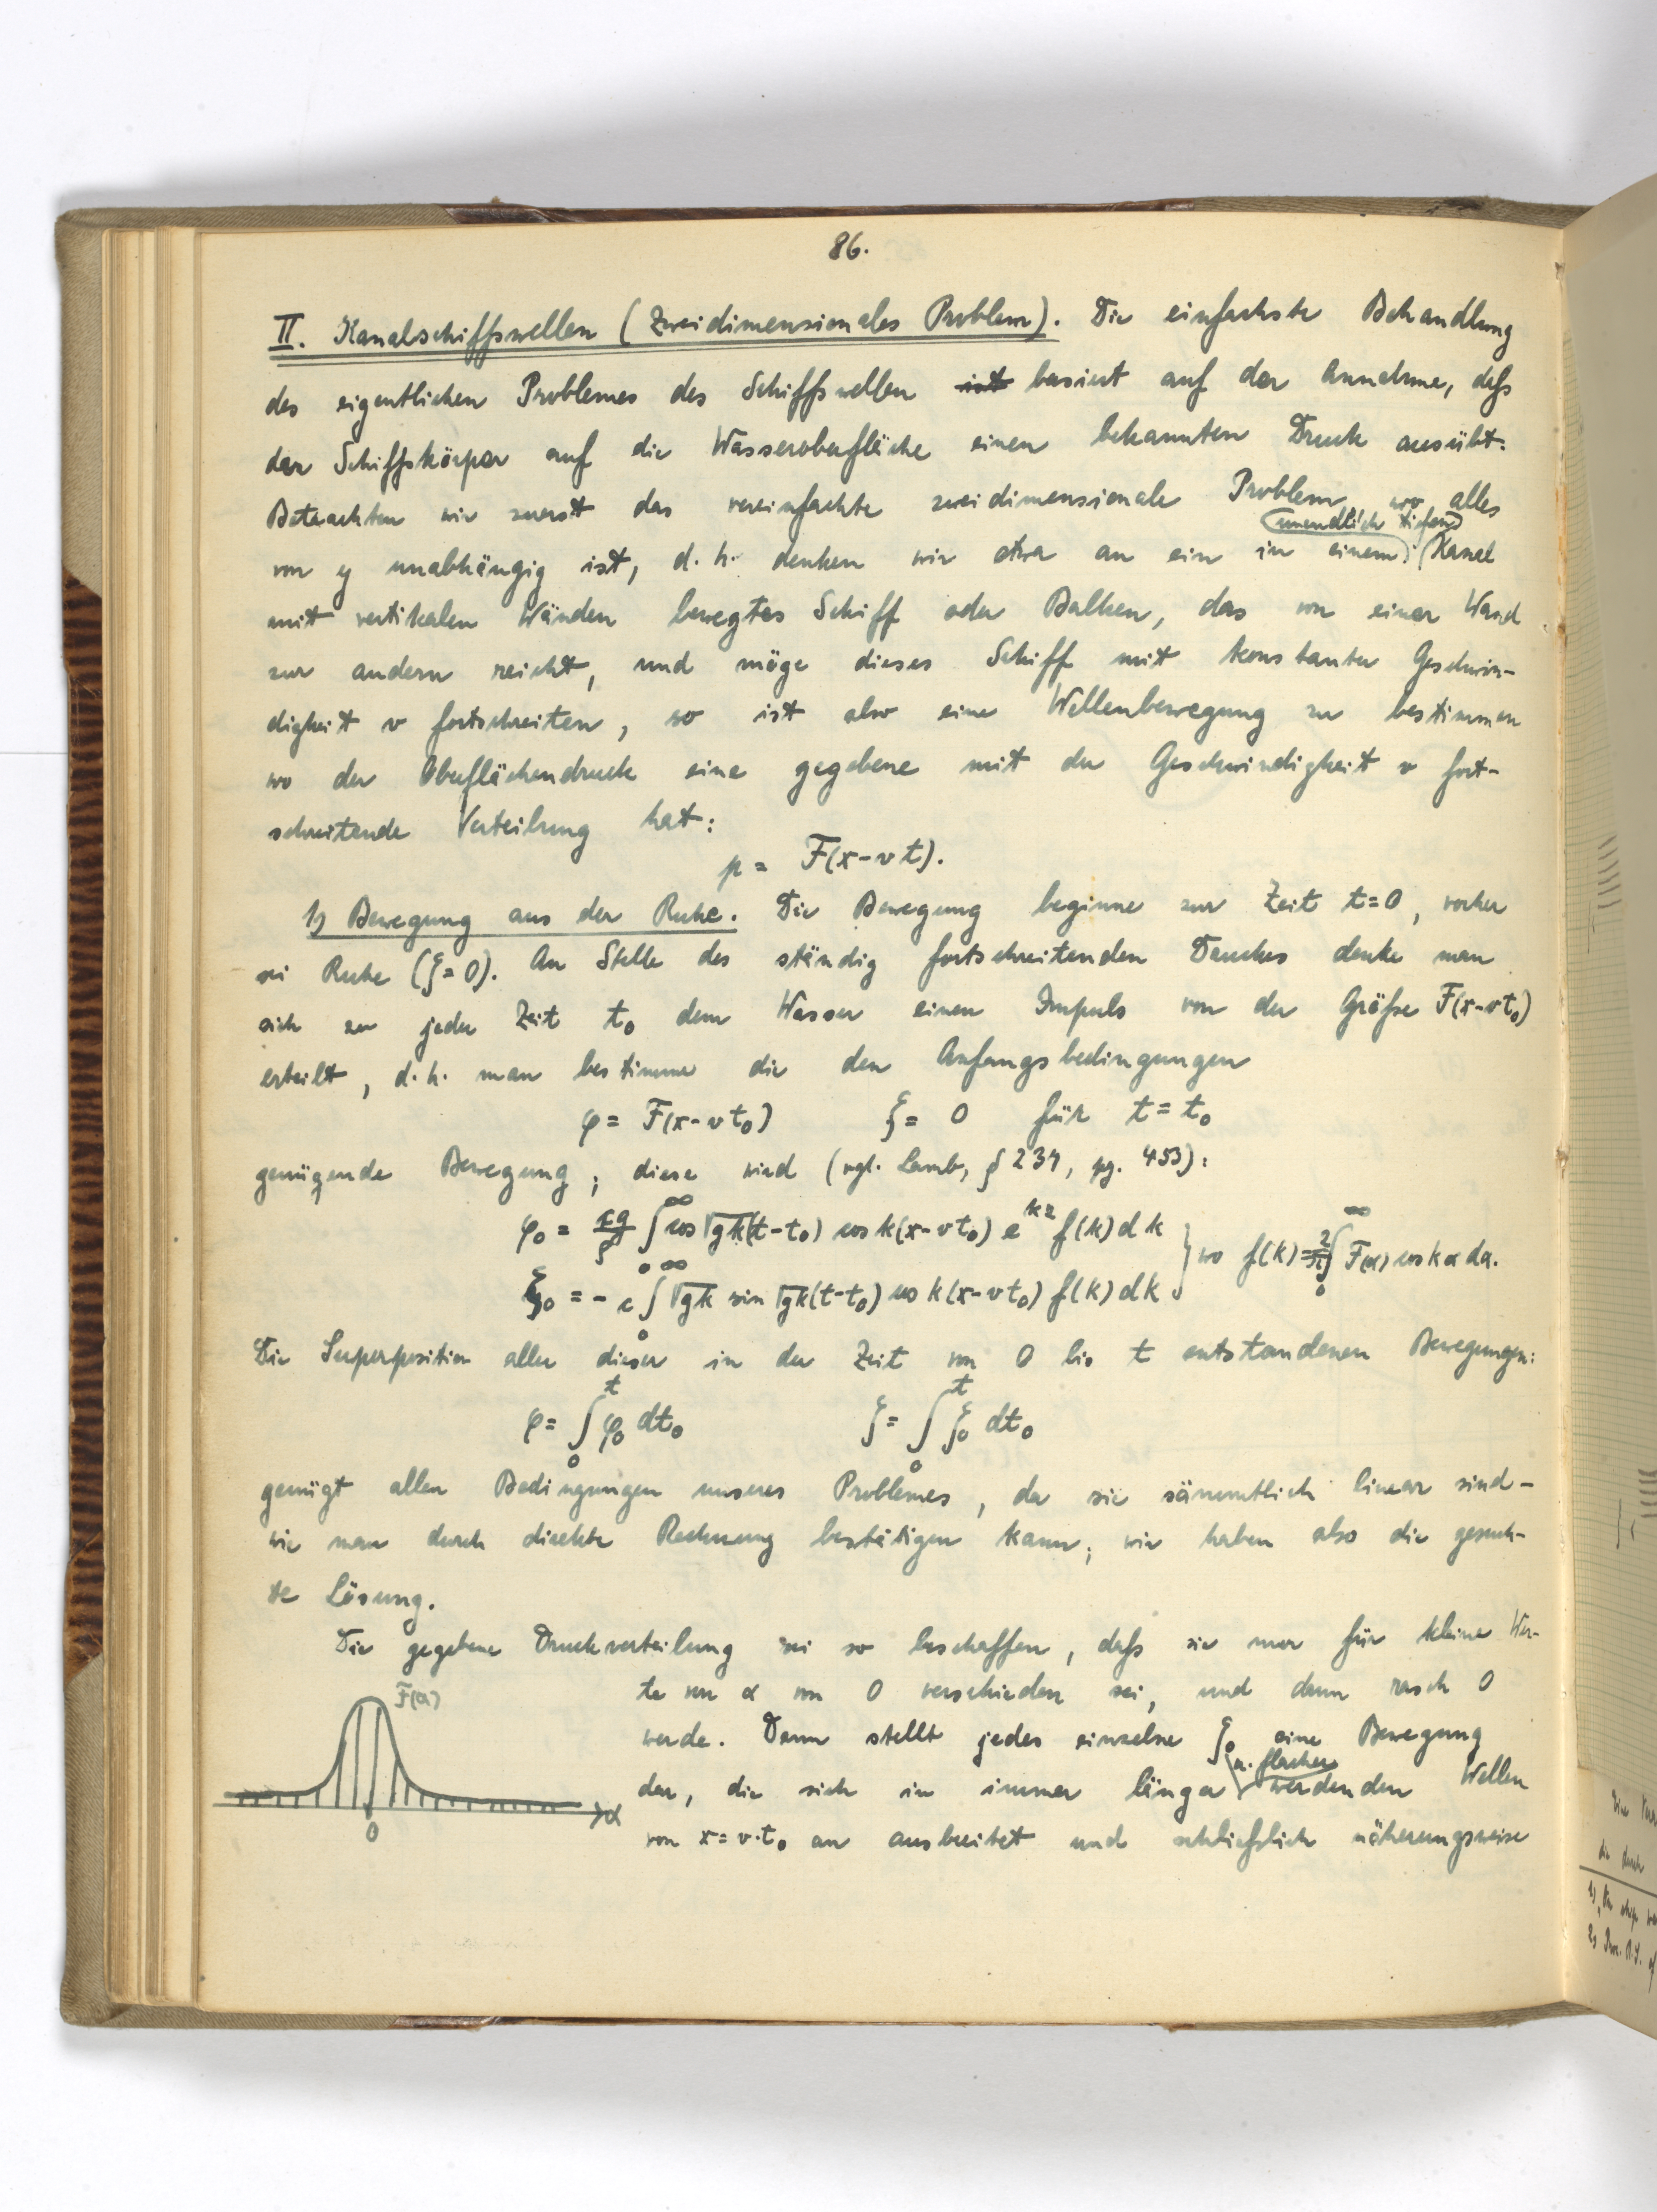 86.
II. Kanalschiffswellen (Zweidimensionales Problem). Die einfachste Behandlung
des eigentlichen Problemes des Schiffswellen ist basiert auf der Annahme, daß
der Schiffskörper auf die Wasseroberfläche einen bekannten Druck ausübt.
Betrachten wir zuerst das vereinfachte zweidimensionale Problem, wo alles
(unendlich tiefen)
von y unabhängig ist, d.h. denken wir etwa an ein in einem Kanal
mit vertikalen Wänden bewegtes Schiff oder Balken, das von einer Wand
zur andern reicht, und möge dieses Schiff mit konstanter Geschwin-
digkeit v fortschreiten, so ist also eine Wellenbewegung zu bestimmen
wo der Oberflächendruck eine gegebene mit der Geschwindigkeit v fort-
schreitende Verteilung hat:
p = F(x-vt).
1) Bewegung aus der Ruhe. Die Bewegung beginne zur Zeit t=0, vorher
sei Ruhe (ξ=0). An Stelle des ständig fortschreitenden Druckes denke man
sich zu jeder Zeit t₀ dem Wasser einen Impuls von der Größe F(x-vt₀)
erteilt, d.h. man bestimme die den Anfangsbedingungen
φ = F(x-vt₀) ξ = 0 für t = t₀
genügende Bewegung; diese wird (vgl. Lamb, § 239, pg. 453):
φ₀ = ∫₀^∞ cos √gk(t-t₀) cos k(x-vt₀) e^{kz} f(k) dk } wo f(k) = 2/π ∫₀^∞ F(α) cos kα dα.
ξ₀ = - c ∫₀^∞ √gk sin √gk(t-t₀) cos k(x-vt₀) f(k) dk
Die Superposition aller dieser in der Zeit von 0 bis t entstandenen Bewegungen:
φ = ∫₀^t φ₀ dt₀ ξ = ∫₀^t ξ₀ dt₀
genügt allen Bedingungen unseres Problemes, da sie sämmtlich linear sind-
wie man durch direkte Rechnung bestätigen kann; wir haben also die gesuch-
te Lösung.
Die gegebene Druckverteilung sei so beschaffen, daß sie nur für kleine Wer-
te von α von 0 verschieden sei, und dann rasch 0
werde. Dann stellt jedes einzelne ξ₀ eine Bewegung
u. flacher
dar, die sich in immer länger werdenden Wellen
von x = v·t₀ an ausbreitet und schließlich näherungsweise
F(α)
0
α